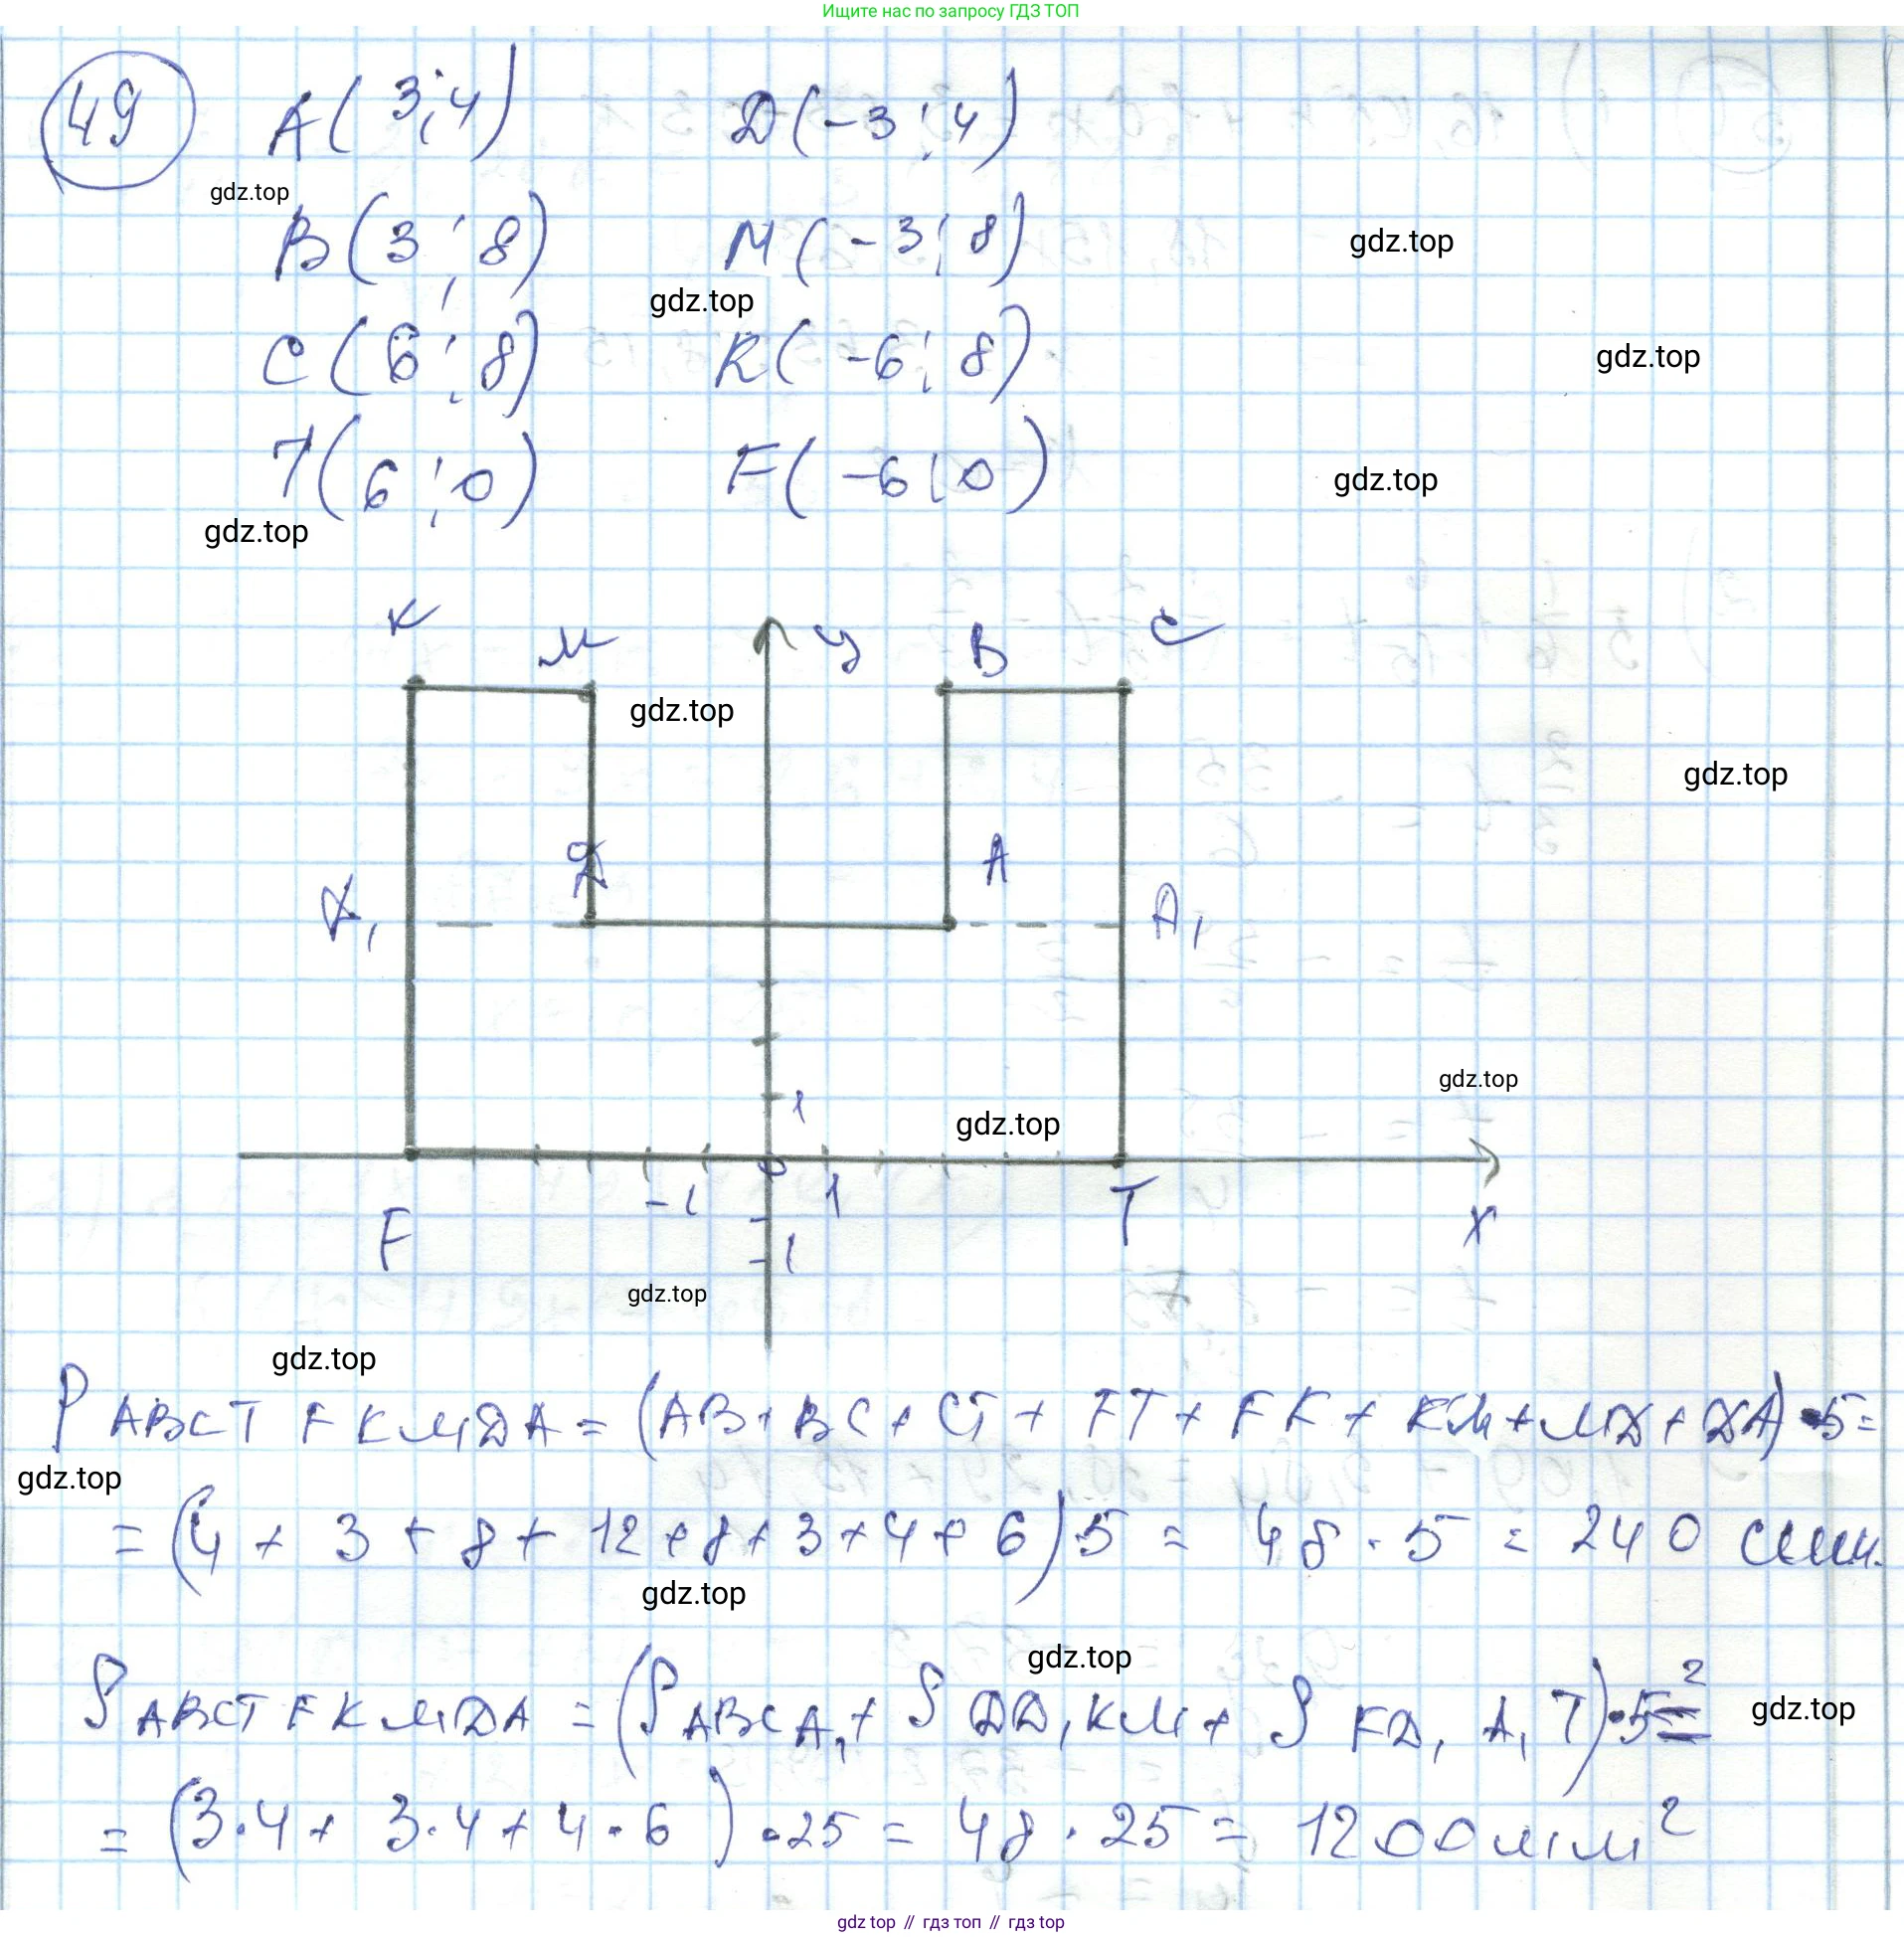 Ищите нас по запросу ГДЗ ТОП
49 A(3;4) D(-3;4)
gdz.top
B(3;8) M(-3;8)
gdz.top
gdz.top
C(6;8) K(-6;8)
gdz.top
T(6;0) F(-6;0)
gdz.top
gdz.top
K M y B C
gdz.top
gdz.top
D A
D₁ A₁
gdz.top
1
gdz.top
0
-1 1 T
F x
-1
gdz.top
gdz.top
P ABCTFKMDA = (AB+BC+CT+FT+FK+KM+MD+DA)·5=
gdz.top
= (4+3+8+12+8+3+4+6)5 = 48·5 = 240
gdz.top
gdz.top
S ABCTFKMDA = (S ABCA₁ + S DD₁KM + S FD₁A₁T)·5²=
gdz.top
= (3·4+3·4+4·6)·25 = 48·25 = 1200 мм²
gdz top // гдз топ // гдз top